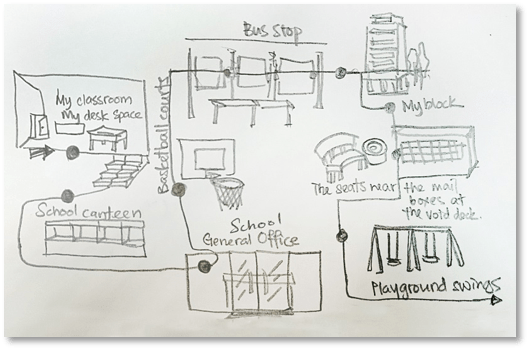 My classroom
My desk space
School canteen
School
General Office
Basketball courts
Bus Stop
My block
The seats near the mail
boxes at
the void deck.
Playground swings